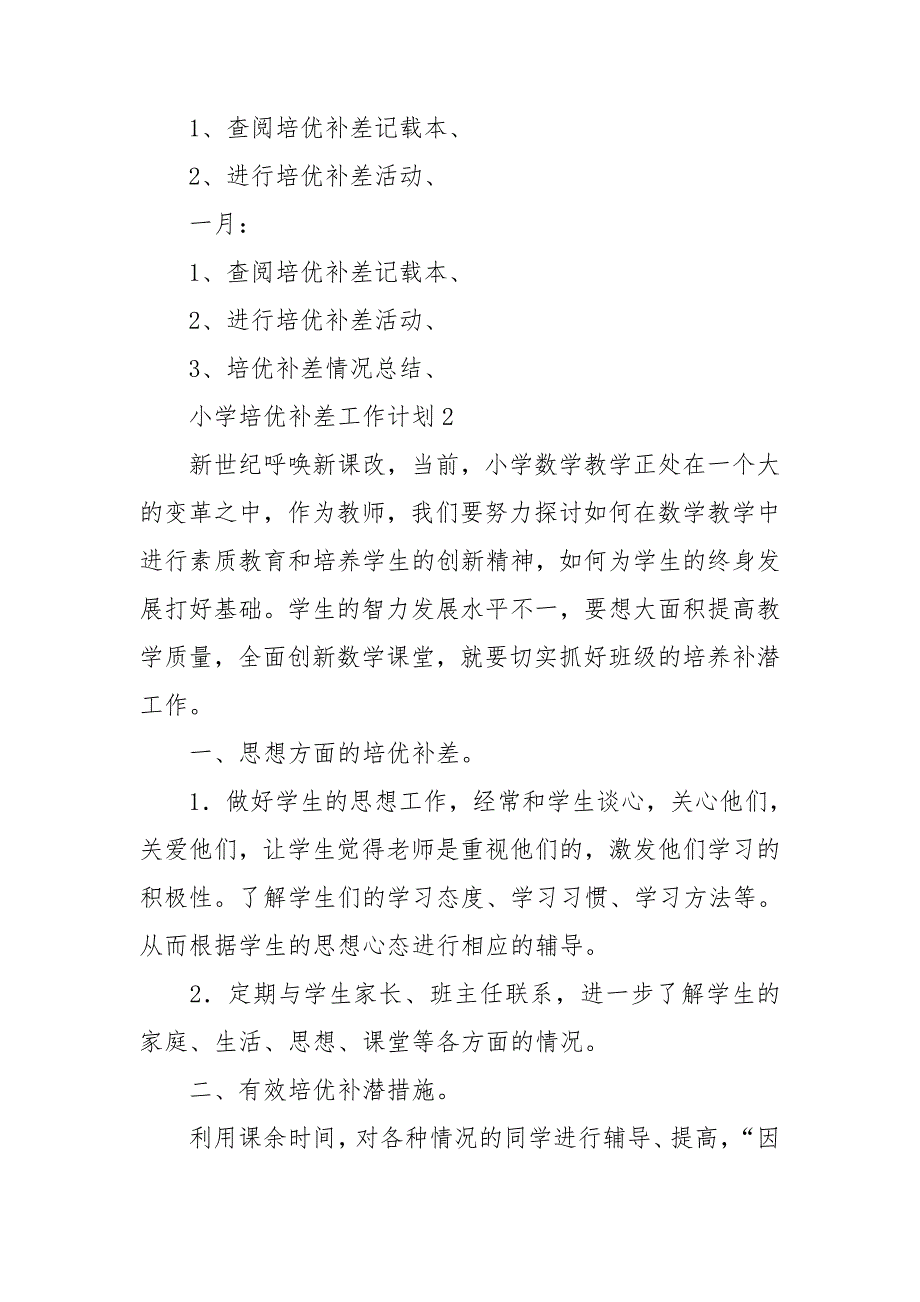 1、查阅培优补差记载本、
2、进行培优补差活动、
一月：
1、查阅培优补差记载本、
2、进行培优补差活动、
3、培优补差情况总结、
小学培优补差工作计划2
新世纪呼唤新课改，当前，小学数学教学正处在一个大
的变革之中，作为教师，我们要努力探讨如何在数学教学中
进行素质教育和培养学生的创新精神，如何为学生的终身发
展打好基础。学生的智力发展水平不一，要想大面积提高教
学质量，全面创新数学课堂，就要切实抓好班级的培养补潜
工作。
一、思想方面的培优补差。
1．做好学生的思想工作，经常和学生谈心，关心他们，
关爱他们，让学生觉得老师是重视他们的，激发他们学习的
积极性。了解学生们的学习态度、学习习惯、学习方法等。
从而根据学生的思想心态进行相应的辅导。
2．定期与学生家长、班主任联系，进一步了解学生的
家庭、生活、思想、课堂等各方面的情况。
二、有效培优补潜措施。
利用课余时间，对各种情况的同学进行辅导、提高，“因